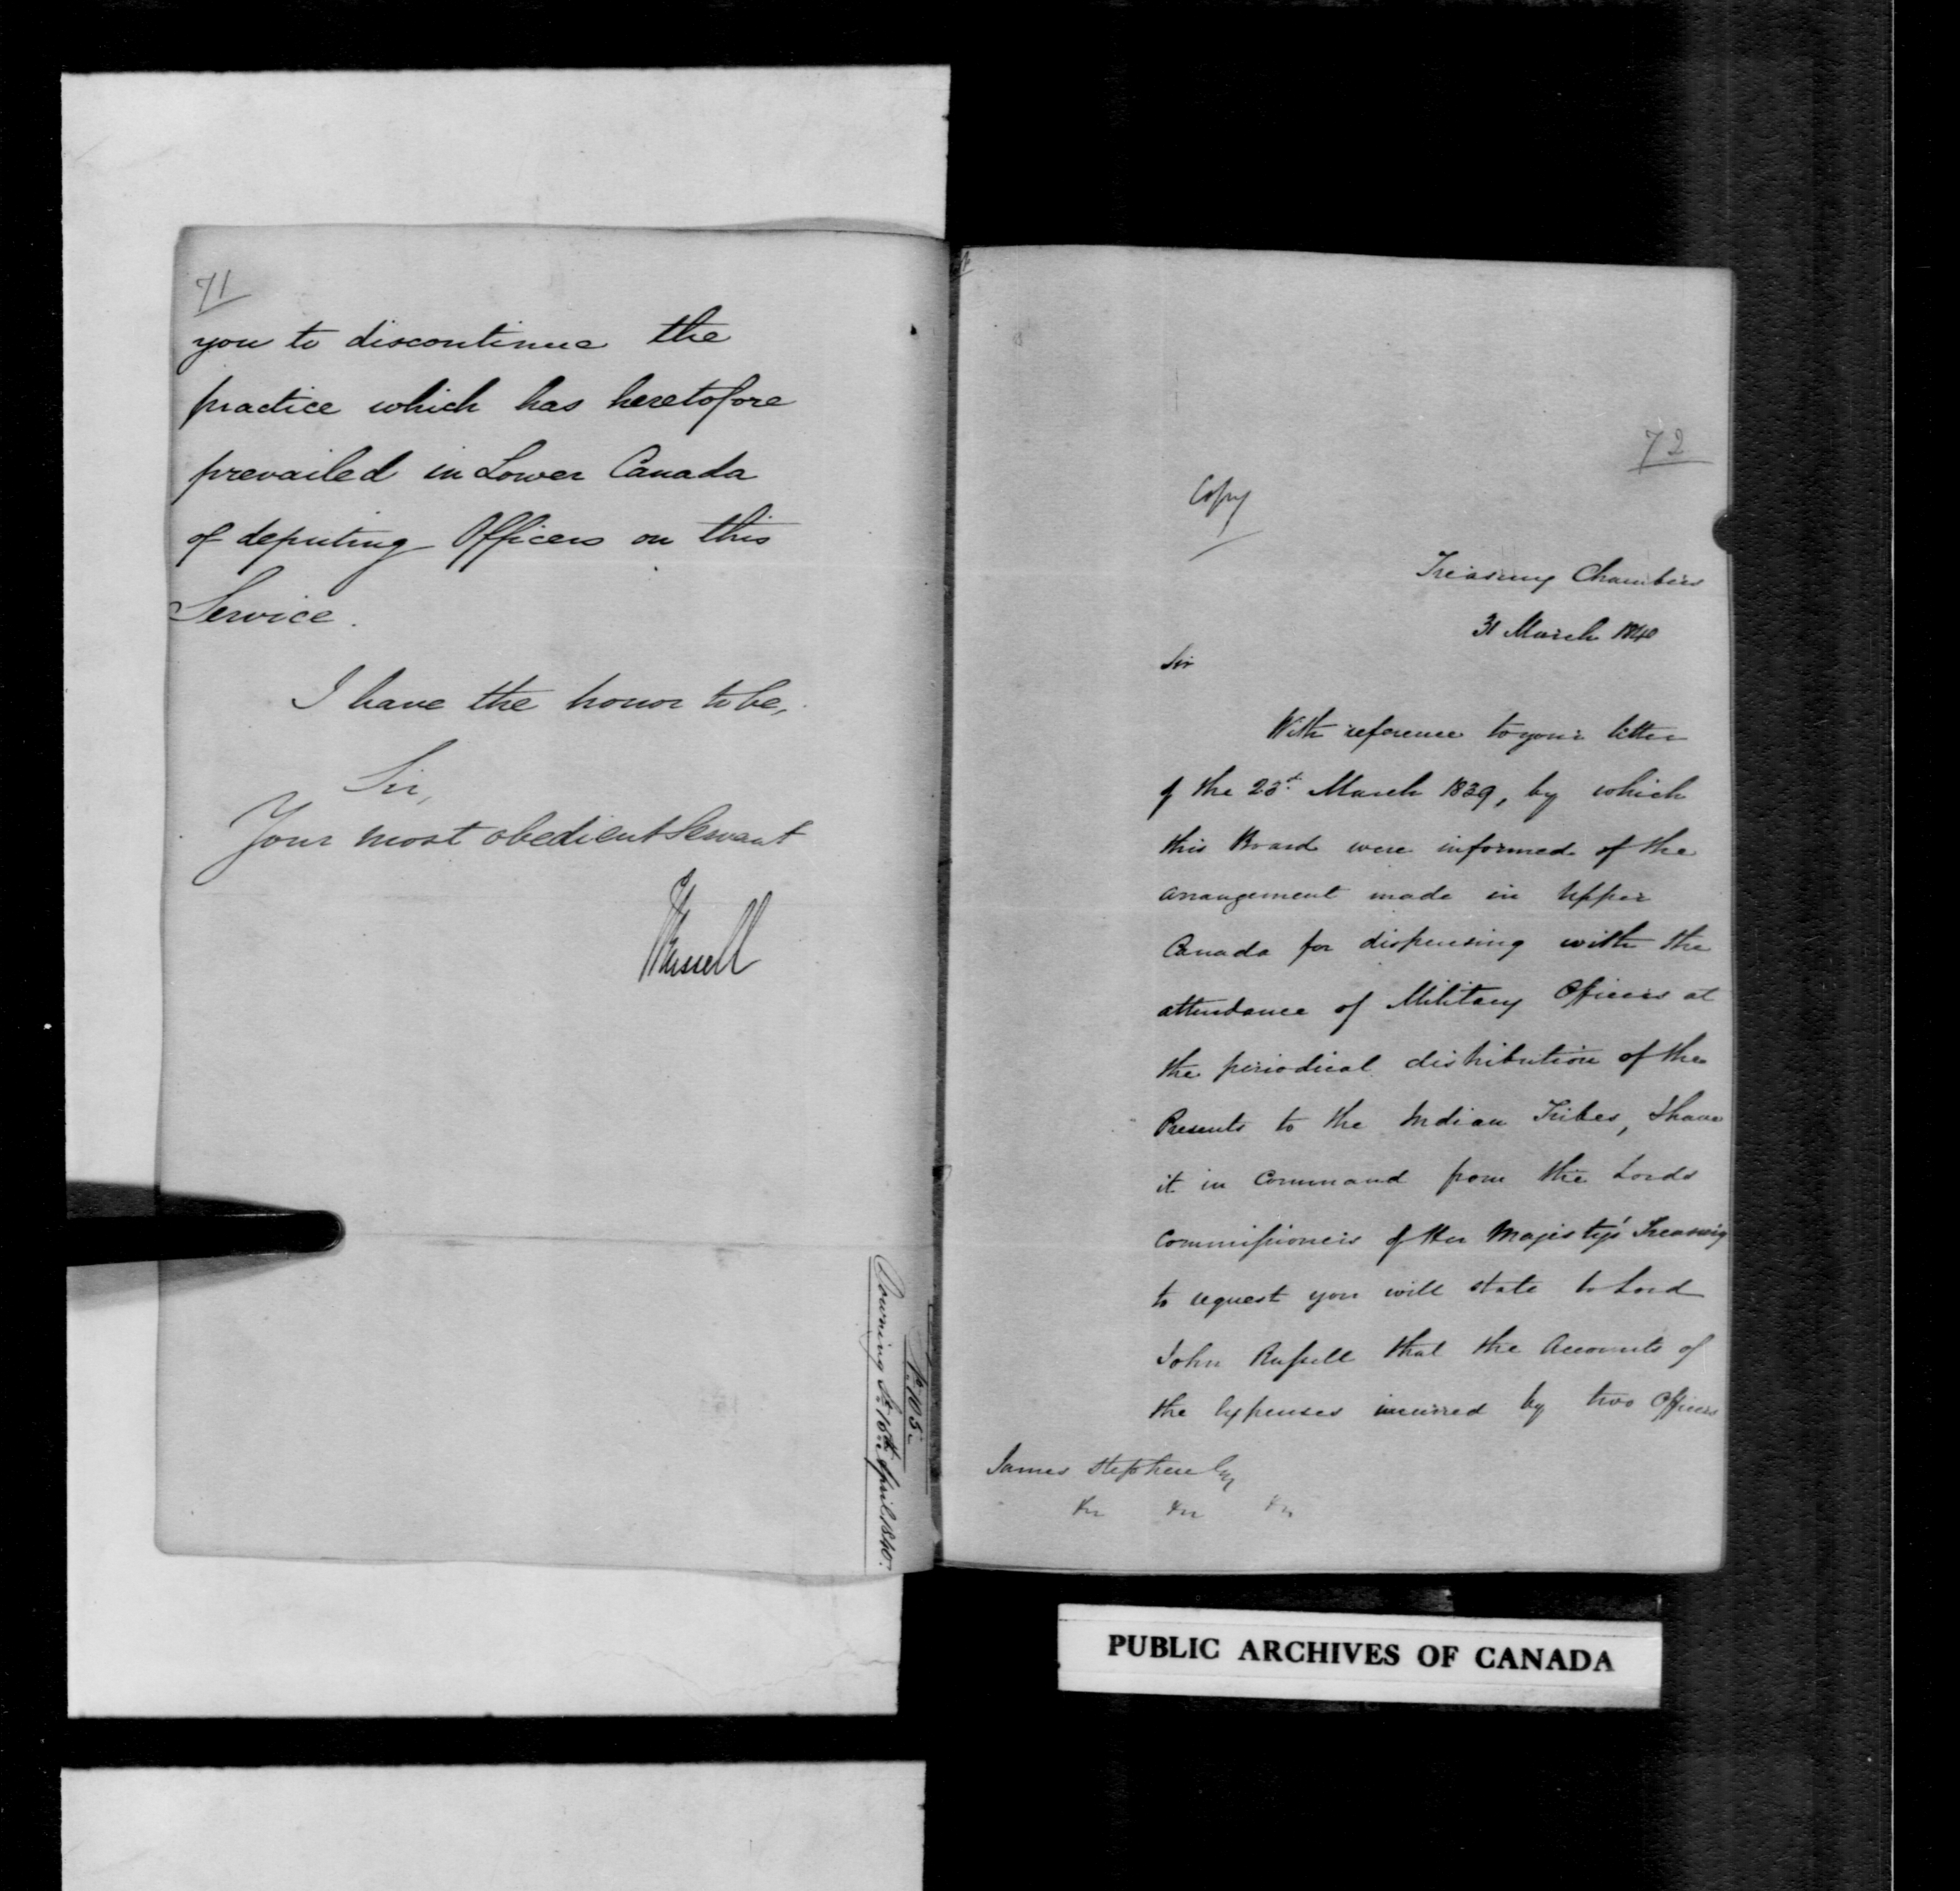 71
you to discontinue the
practice which has heretofore
prevailed in Lower Canada
of deputing Officers on this
Service.
I have the honor to be,
Sir,
Your most obedient Servant
J Russell
No. 105.
Downing St. 10th April 1840.
72
Copy
Treasury Chambers
31 March 1840
Sir
With reference to your letter
of the 23d. March 1839, by which
this Board were informed of the
arrangement made in Upper
Canada for dispensing with the
attendance of Military Officers at
the periodical distribution of the
Presents to the Indian Tribes, I have
it in Command from the Lords
Commissioners of Her Majesty's Treasury
to request you will state to Lord
John Russell that the Accounts of
the Expenses incurred by two Officers
James Stephen Esq
PUBLIC ARCHIVES OF CANADA